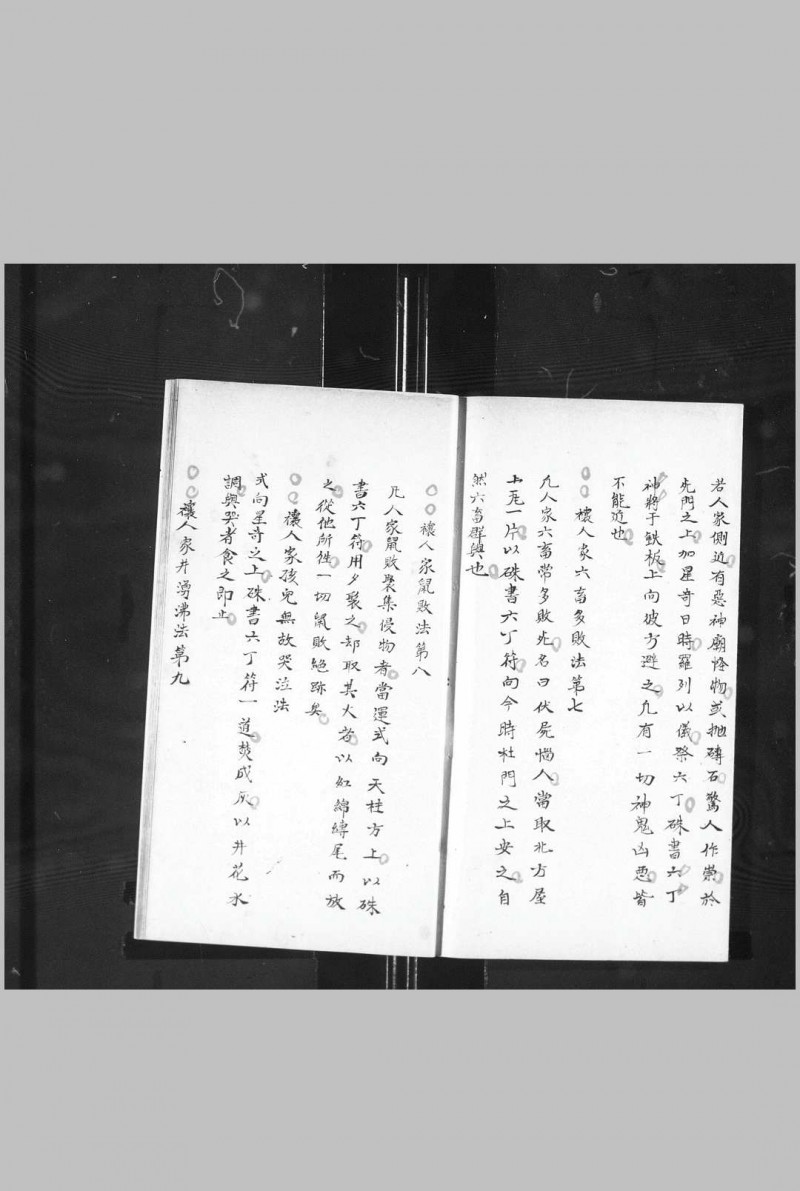 若人家側近有惡神廟怪物或拋磚石驚人作祟於
先門之上加星奇日時羅列以儀祭六丁硃書六丁
神將于鉄板上向彼方避之凢有一切神鬼凶惡皆
不能近也
禳人家六畜多敗法第七
凢人家六畜常多敗死名曰伏屍惱人當取北方屋
上瓦一片以硃書六丁符向今時杜門之上安之自
然六畜群興也
禳人家鼠敗法第八
凡人家鼠敗聚集侵物者當運式向天柱方上以硃
書六丁符用夕聚之却取其大者以紅綿縛尾而放
之從他所徃一切鼠敗絕跡矣
禳人家孩兒無故哭泣法
式向星奇之上硃書六丁符一道焚成灰以井花水
調與哭者食之即止
禳人家井湧沸法第九